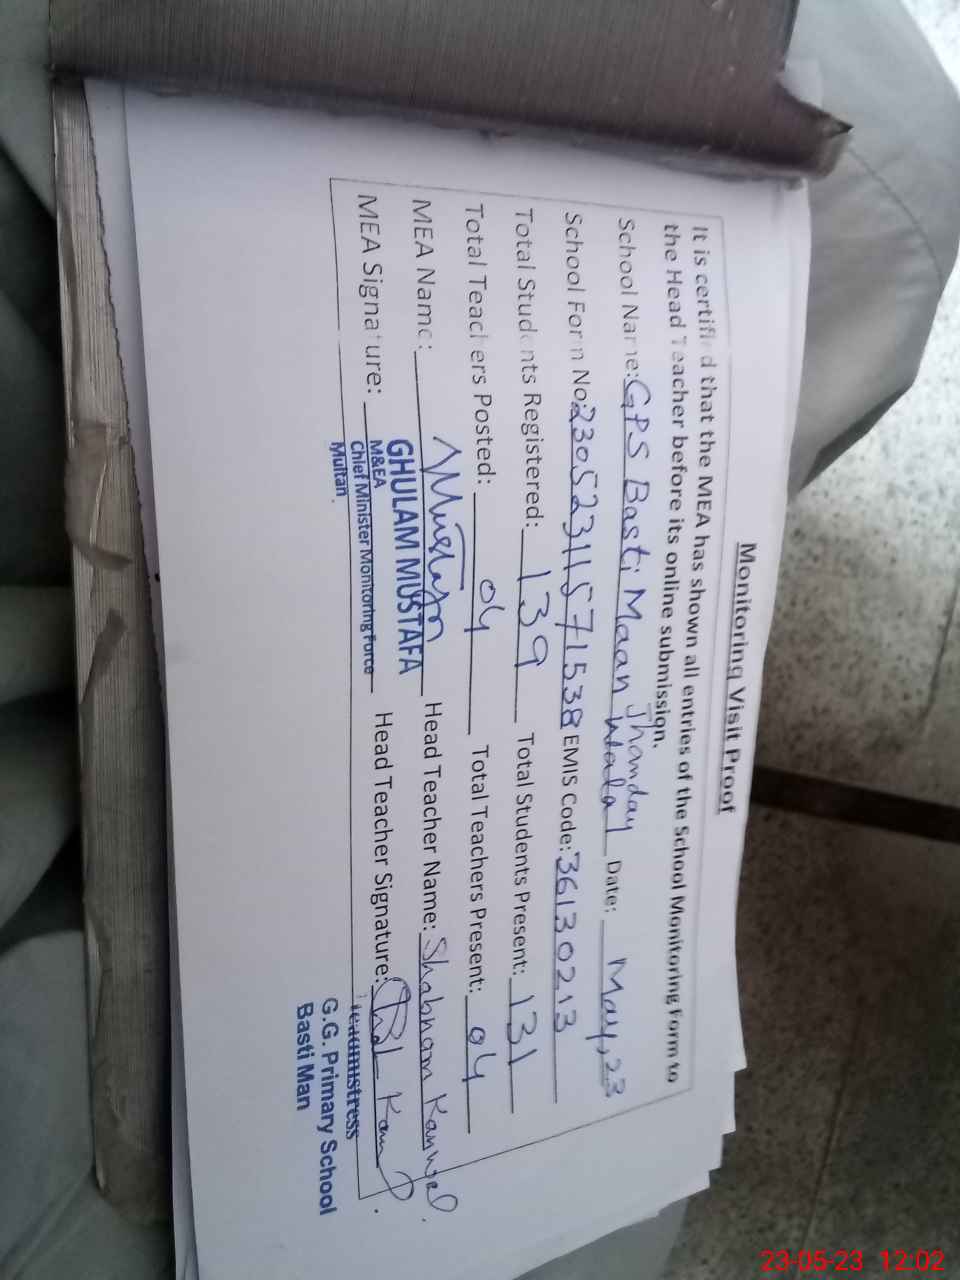 Monitoring Visit Proof
It is certified that the MEA has shown all entries of the School Monitoring Form to
the Head Teacher before its online submission.
School Name: GPS Basti Maan Jhanday Wala Date: May, 23
School Form No: 23052311571538 EMIS Code: 36130213
Total Students Registered: 139 Total Students Present: 131
Total Teachers Posted: 04 Total Teachers Present: 04
MEA Name: Head Teacher Name: Shabnam Kanwel.
GHULAM MUSTAFA
MEA Signature: Head Teacher Signature:
M&EA
Chief Minister Monitoring Force
Multan
Headmistress
G.G. Primary School
Basti Man
23-05-23 12:02